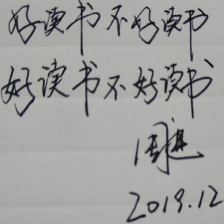 好读书不好读书
好读书不好读书
2019.12